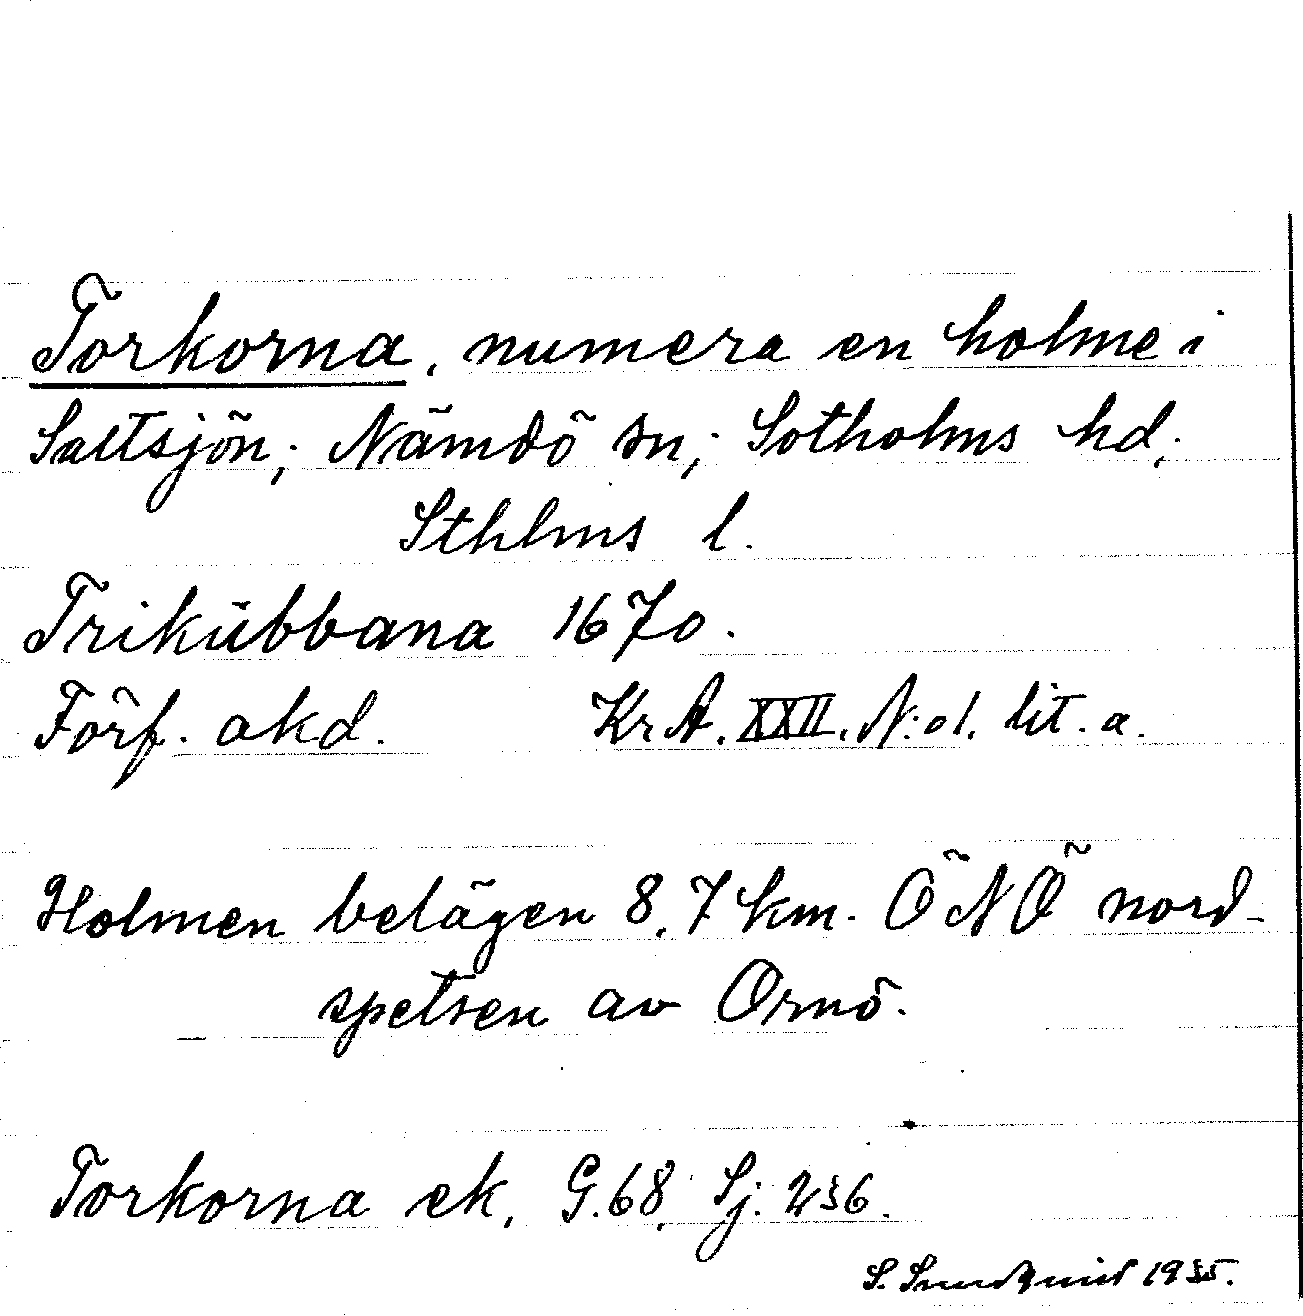 Torkorna, numera en holme i
Saltsjön; Nämdö sn; Sotholms hd;
Sthlms l.
Trikübbana 1670.
Förf. akd. KrA. XXII. N:o 1. lit. a.
Holmen belägen 8,7 km. ÖNÖ nord-
spetsen av Ornö.
Torkorna ek. G.68. Sj. 236.
S. 1935.